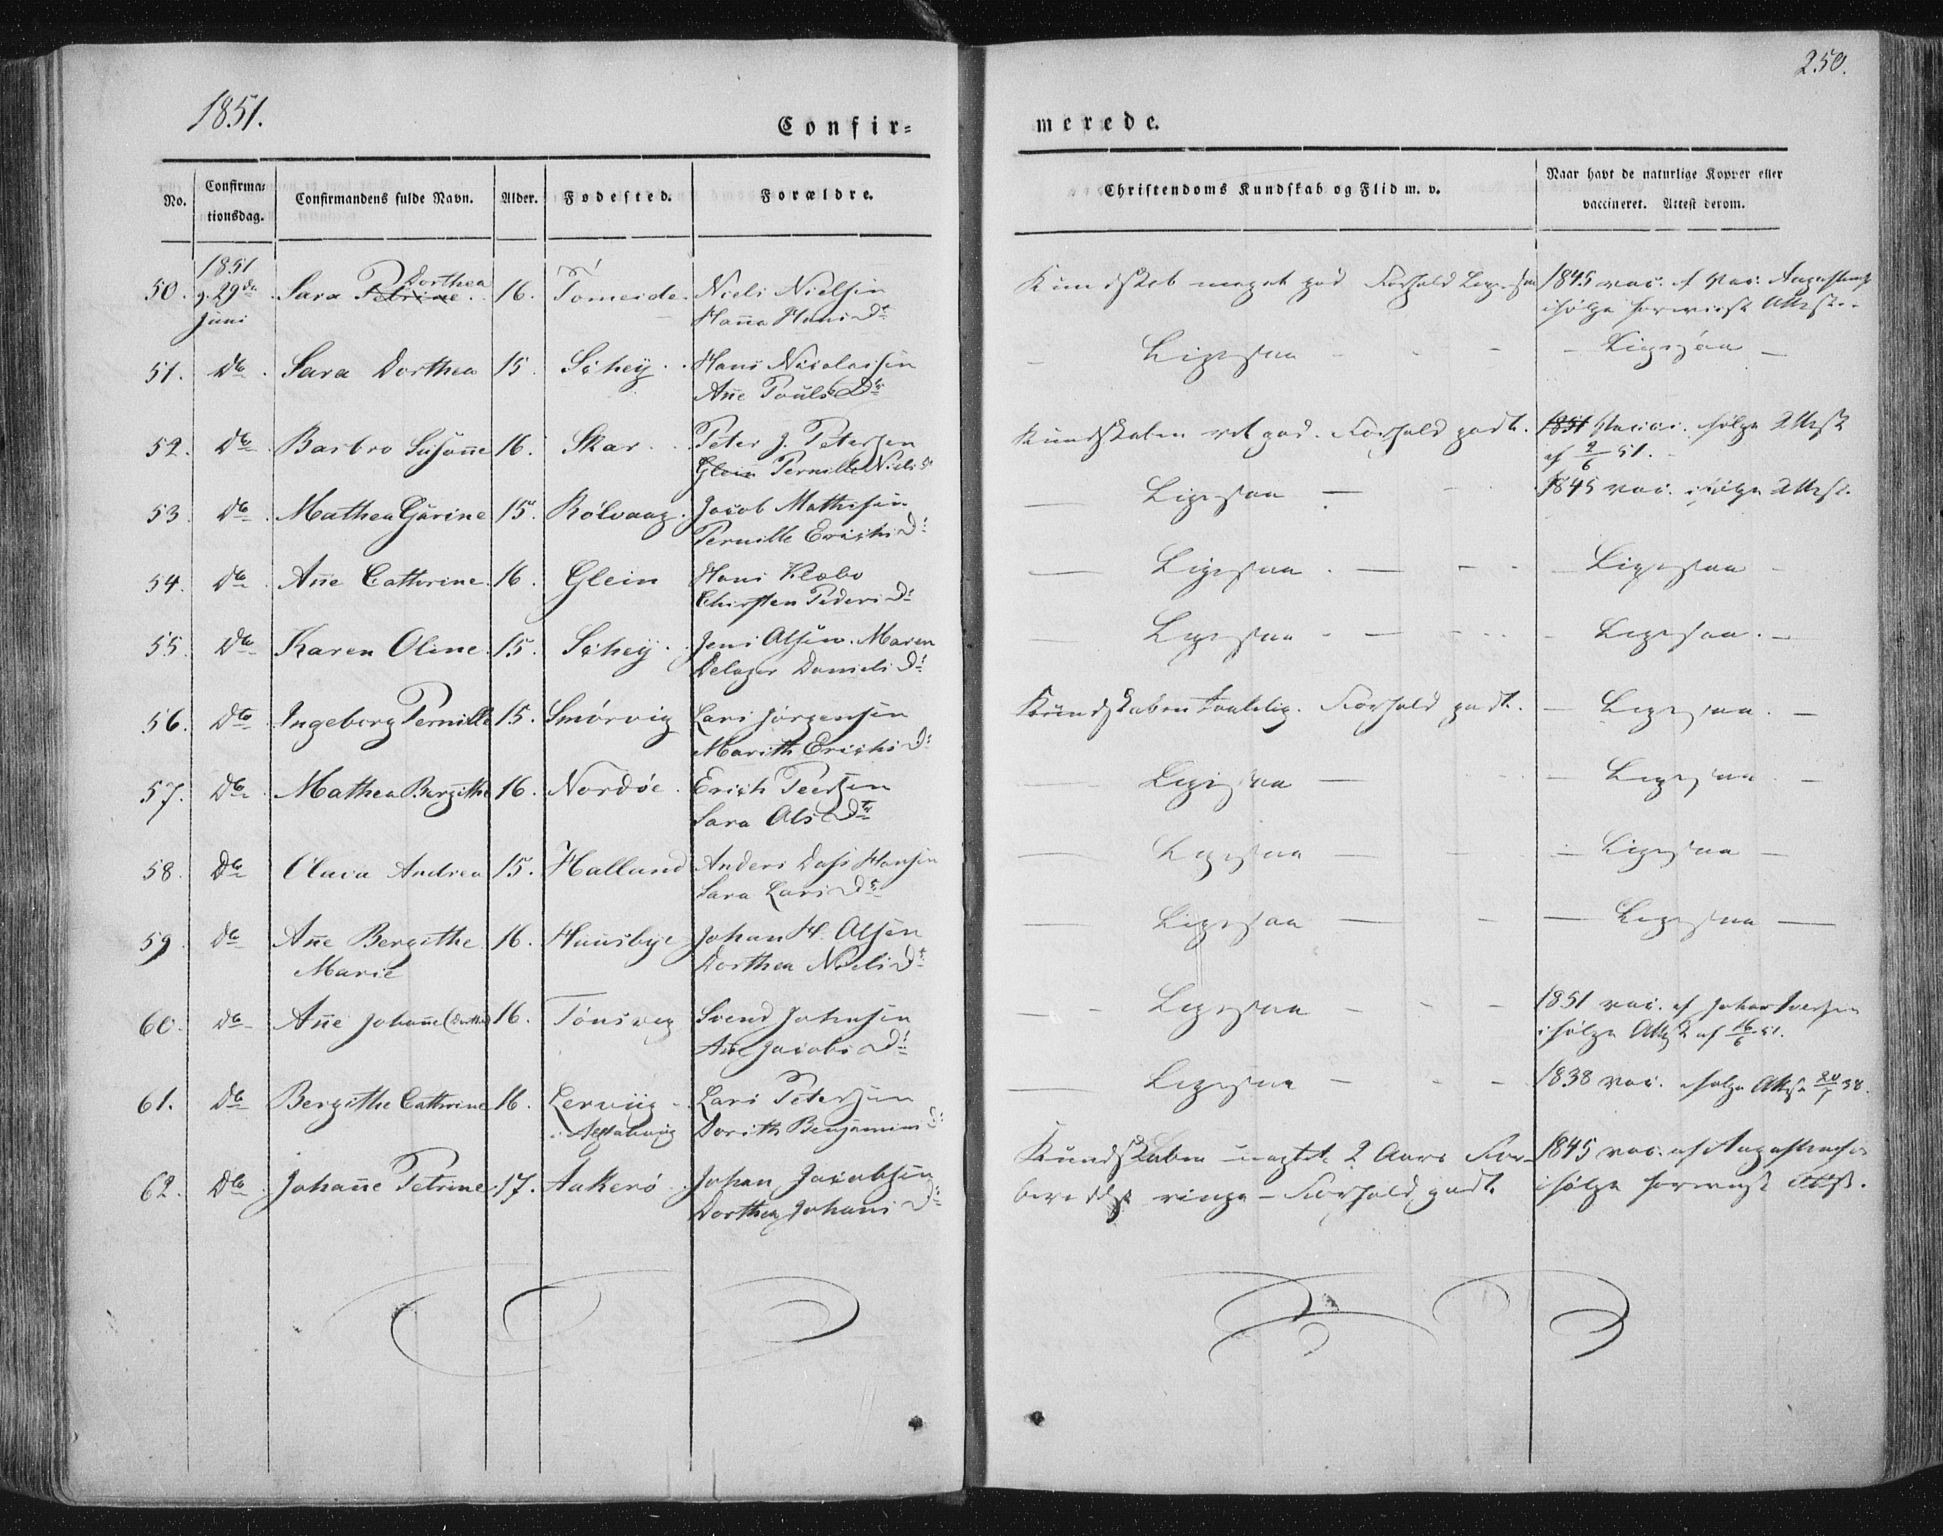 1851.
250.
Confir-
merede.
No.
Confirma-
tionsdag.
Confirmandens fulde Navn.
Alder.
Fødested.
Forældre.
Christendoms Kundskab og Flid m. v.
Naar havt de naturlige Kopper eller
vaccineret. Attest derom.
50. 1851 29de Juni Sara Petrine Dorthea 16. Tomeide. Niels Nielsen
Hanna Hans D:
Kundskab meget god Forhold Ligesaa 1845 vac. af
ifølge forevist Attest.
51. Do. Sara Dorthea 15. Hans Nicolaisen
Ane Pouls Dtr
Ligesaa Ligesaa
52. Do Barbro Susanne 16. Skar. Peter J. Petersen
Glein Pernille Niels D
Kundskaben ret god. Forhold godt. 1851 ifølge Attest
af 2/6 51.
53 Do Mathea Gurine 15. Rølvaag. Jacob Mathisen
Pernille Erichs D:
Ligesaa 1845 vac. ifølge Attest.
54. Do Ane Cathrine. 16. Glein Hans Klæbo
Chirsten Peders D:
Ligesaa. Ligesaa
55. Do Karen Oline 15. Jens Olsen. Maren
Delager Daniels D:
Ligesaa Ligesaa.
56. Do Ingeborg Pernille 15. Smørvig Lars Jørgensen
Marith Erichs D:
Kundskaben taalelig. Forhold godt. Ligesaa.
57. Do Mathea Bergithe 16. Nordøe. Erich Peersen
Sara Ols Dtr
Ligesaa Ligesaa.
58. Do Olava Andrea 15. Halland Anders Dass Hansen
Sara Lars D:
Ligesaa Ligesaa
59. Do Ane Bergithe 16. Huusbye Johan H. Olsen
Marie Dorthea Niels D:
Ligesaa Ligesaa
60. Do Ane Johanne (Dorthea) 16. Tønsvig Svend Johnsen
Ane Jacobs D:
Ligesaa 1851 vac. af Johan Iversen
ifølge Attest af 16/6 51.
61. Do Bergithe Cathrine 16. Lervиig Lars Petersen
Dorith Benjamins D:
Ligesaa 1838 vac. ifølge Attest 38.
62. Do Johanne Petrine 17. Aakerø. Johan Jacobsen
Dorthea Johans D:
Kundskaben uagtet 2 Aars For- 1845 vac. af
beredelse ringe - Forhold godt. ifølge forevist Attest.